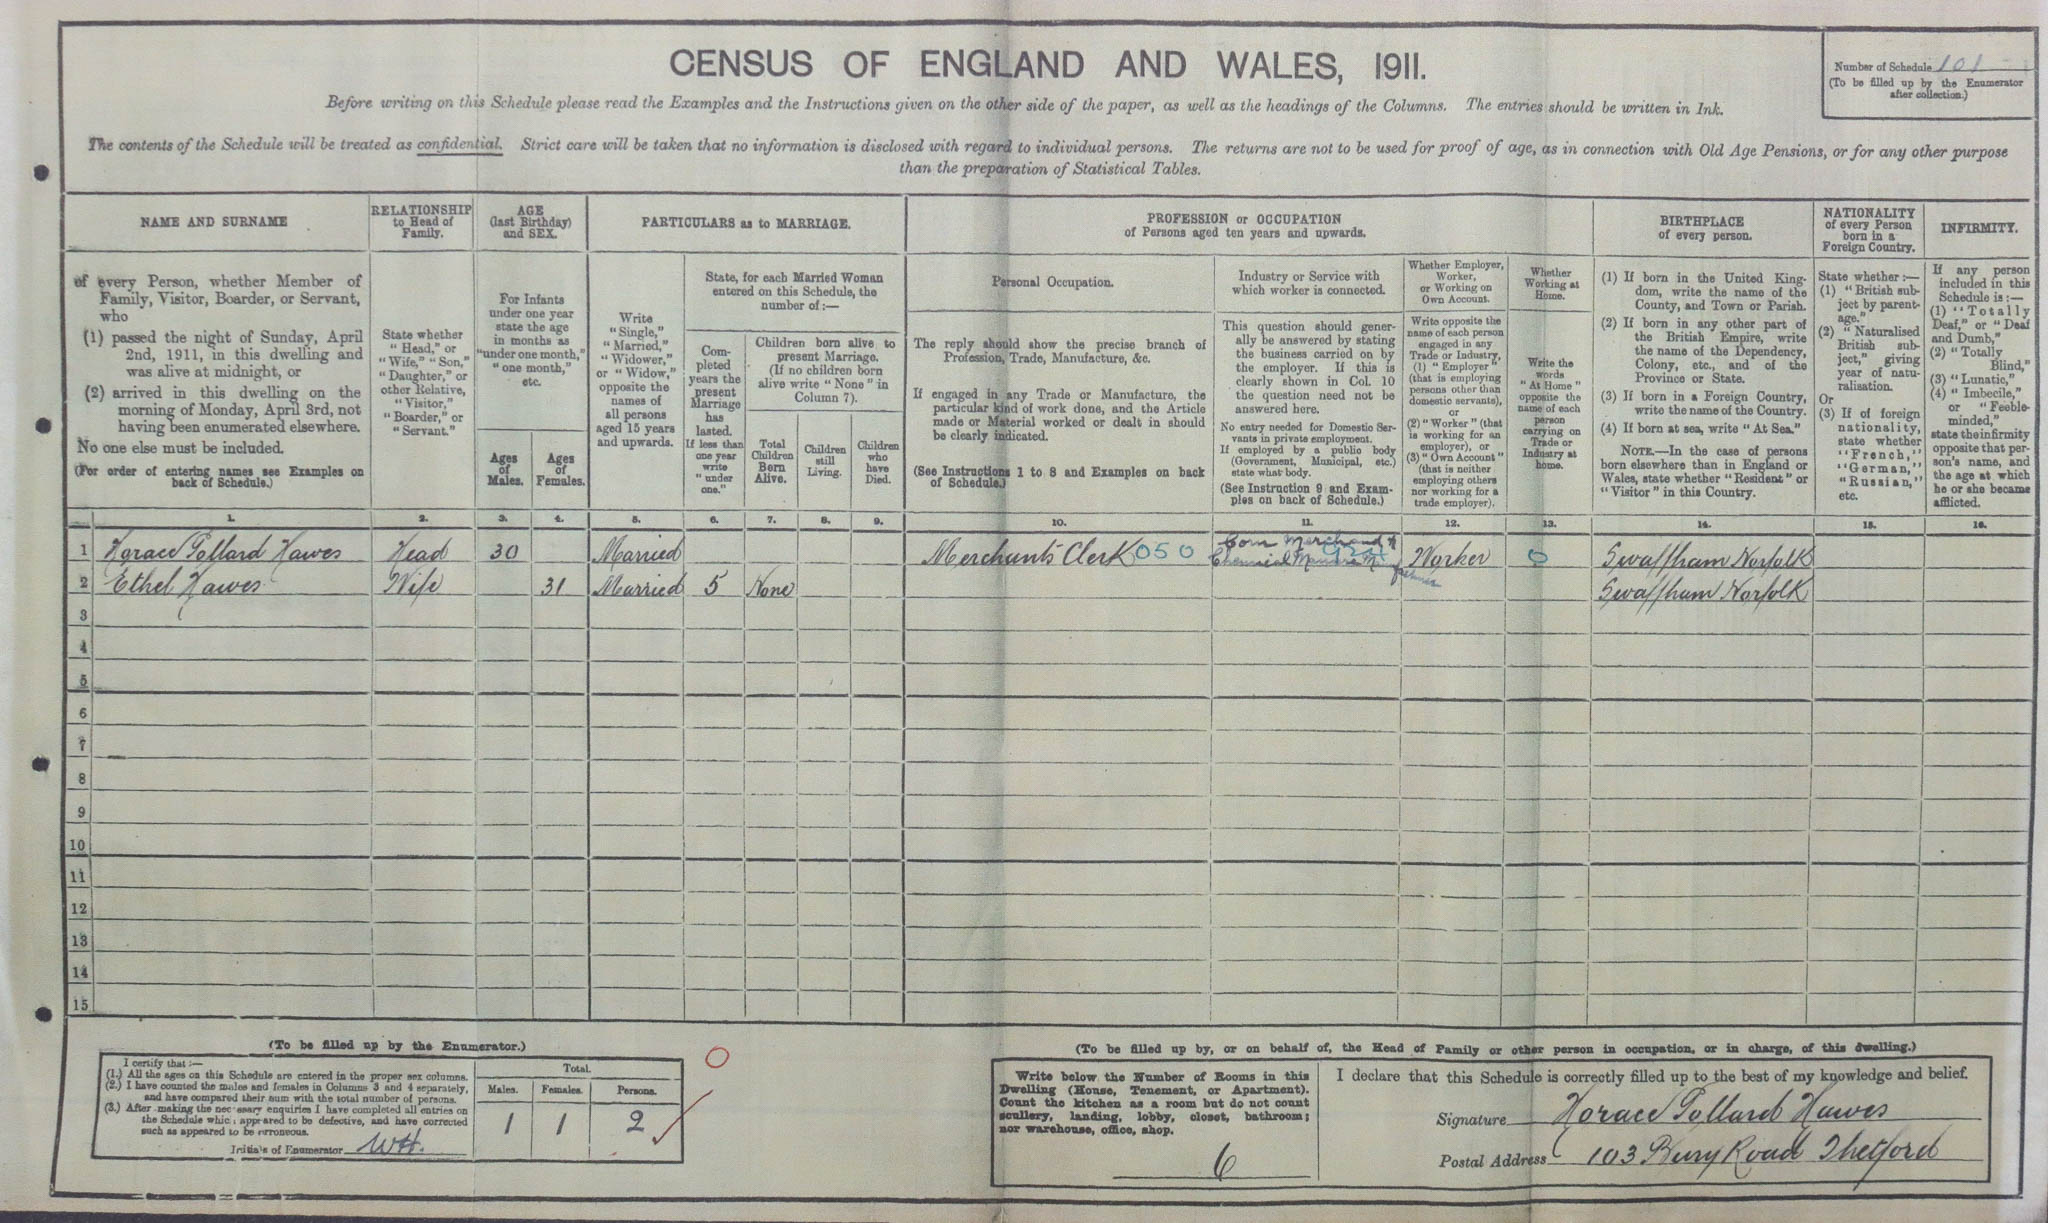 CENSUS OF ENGLAND AND WALES, 1911.
Number of Schedule 101
(To be filled up by the Enumerator
after collection.)
Before writing on this Schedule please read the Examples and the Instructions given on the other side of the paper, as well as the headings of the Columns. The entries should be written in Ink.
The contents of the Schedule will be treated as confidential. Strict care will be taken that no information is disclosed with regard to individual persons. The returns are not to be used for proof of age, as in connection with Old Age Pensions, or for any other purpose
than the preparation of Statistical Tables.
NAME AND SURNAME
of every Person, whether Member of
Family, Visitor, Boarder, or Servant,
who
(1) passed the night of Sunday, April
2nd, 1911, in this dwelling and
was alive at midnight, or
(2) arrived in this dwelling on the
morning of Monday, April 3rd, not
having been enumerated elsewhere.
No one else must be included.
(For order of entering names see Examples on
back of Schedule.)
RELATIONSHIP
to Head of
Family.
State whether
"Head," or
"Wife," "Son,"
"Daughter," or
other Relative,
"Visitor,"
"Boarder," or
"Servant."
AGE
(last Birthday)
and SEX.
For Infants
under one year
state the age
in months as
"under one month,"
"one month,"
etc.
Ages
of
Males.
Ages
of
Females.
PARTICULARS as to MARRIAGE.
Write
"Single,"
"Married,"
"Widower,"
or "Widow,"
opposite the
names of
all persons
aged 15 years
and upwards.
State, for each Married Woman
entered on this Schedule, the
number of:—
Com-
pleted
years the
present
Marriage
has
lasted.
If less than
one year
write
"under
one."
Children born alive to
present Marriage.
(If no children born
alive write "None" in
Column 7).
Total
Children
Born
Alive.
Children
still
Living.
Children
who
have
Died.
PROFESSION or OCCUPATION
of Persons aged ten years and upwards.
Personal Occupation.
The reply should show the precise branch of
Profession, Trade, Manufacture, &c.
If engaged in any Trade or Manufacture, the
particular kind of work done, and the Article
made or Material worked or dealt in should
be clearly indicated.
(See Instructions 1 to 8 and Examples on back
of Schedule.)
Industry or Service with
which worker is connected.
This question should gener-
ally be answered by stating
the business carried on by
the employer. If this is
clearly shown in Col. 10
the question need not be
answered here.
No entry needed for Domestic Ser-
vants in private employment.
If employed by a public body
(Government, Municipal, etc.)
state what body.
(See Instruction 9 and Exam-
ples on back of Schedule.)
Whether Employer,
Worker,
or Working on
Own Account.
Write opposite the
name of each person
engaged in any
Trade or Industry,
(1) "Employer"
(that is employing
persons other than
domestic servants),
or
(2) "Worker" (that
is working for an
employer), or
(3) "Own Account"
(that is neither
employing others
nor working for a
trade employer).
Whether
Working at
Home.
Write the
words
"At Home"
opposite the
name of each
person
carrying on
Trade or
Industry at
home.
BIRTHPLACE
of every person.
(1) If born in the United King-
dom, write the name of the
County, and Town or Parish.
(2) If born in any other part of
the British Empire, write
the name of the Dependency,
Colony, etc., and of the
Province or State.
(3) If born in a Foreign Country,
write the name of the Country.
(4) If born at sea, write "At Sea."
NOTE.—In the case of persons
born elsewhere than in England or
Wales, state whether "Resident" or
"Visitor" in this Country.
NATIONALITY
of every Person
born in a
Foreign Country.
State whether:—
(1) "British sub-
ject by parent-
age."
(2) "Naturalised
British sub-
ject," giving
year of natu-
ralisation.
Or
(3) If of foreign
nationality,
state whether
"French,"
"German,"
"Russian,"
etc.
INFIRMITY.
If any person
included in this
Schedule is:—
(1) "Totally
Deaf," or "Deaf
and Dumb,"
(2) "Totally
Blind,"
(3) "Lunatic,"
(4) "Imbecile,"
or "Feeble-
minded,"
state the infirmity
opposite that per-
son's name, and
the age at which
he or she became
afflicted.
1. 2. 3. 4. 5. 6. 7. 8. 9. 10. 11. 12. 13. 14. 15. 16.
1 Horace Pollard Hawes Head 30 Married Merchants Clerk 050 Corn Merchand & Chemical Worker 0 Swaffham Norfolk
2 Ethel Hawes Wife 31 Married 5 None Swaffham Norfolk
3
4
5
6
7
8
9
10
11
12
13
14
15
(To be filled up by the Enumerator.)
I certify that:—
(1.) All the ages on this Schedule are entered in the proper sex columns.
(2.) I have counted the males and females in Columns 3 and 4 separately,
and have compared their sum with the total number of persons.
(3.) After making the necessary enquiries I have completed all entries on
the Schedule which appeared to be defective, and have corrected
such as appeared to be erroneous.
Initials of Enumerator W.H.
Total.
Males. Females. Persons.
1 1 2
0
(To be filled up by, or on behalf of, the Head of Family or other person in occupation, or in charge, of this dwelling.)
Write below the Number of Rooms in this
Dwelling (House, Tenement, or Apartment).
Count the kitchen as a room but do not count
scullery, landing, lobby, closet, bathroom;
nor warehouse, office, shop.
6
I declare that this Schedule is correctly filled up to the best of my knowledge and belief.
Signature Horace Pollard Hawes
Postal Address 103 Bury Road Thetford